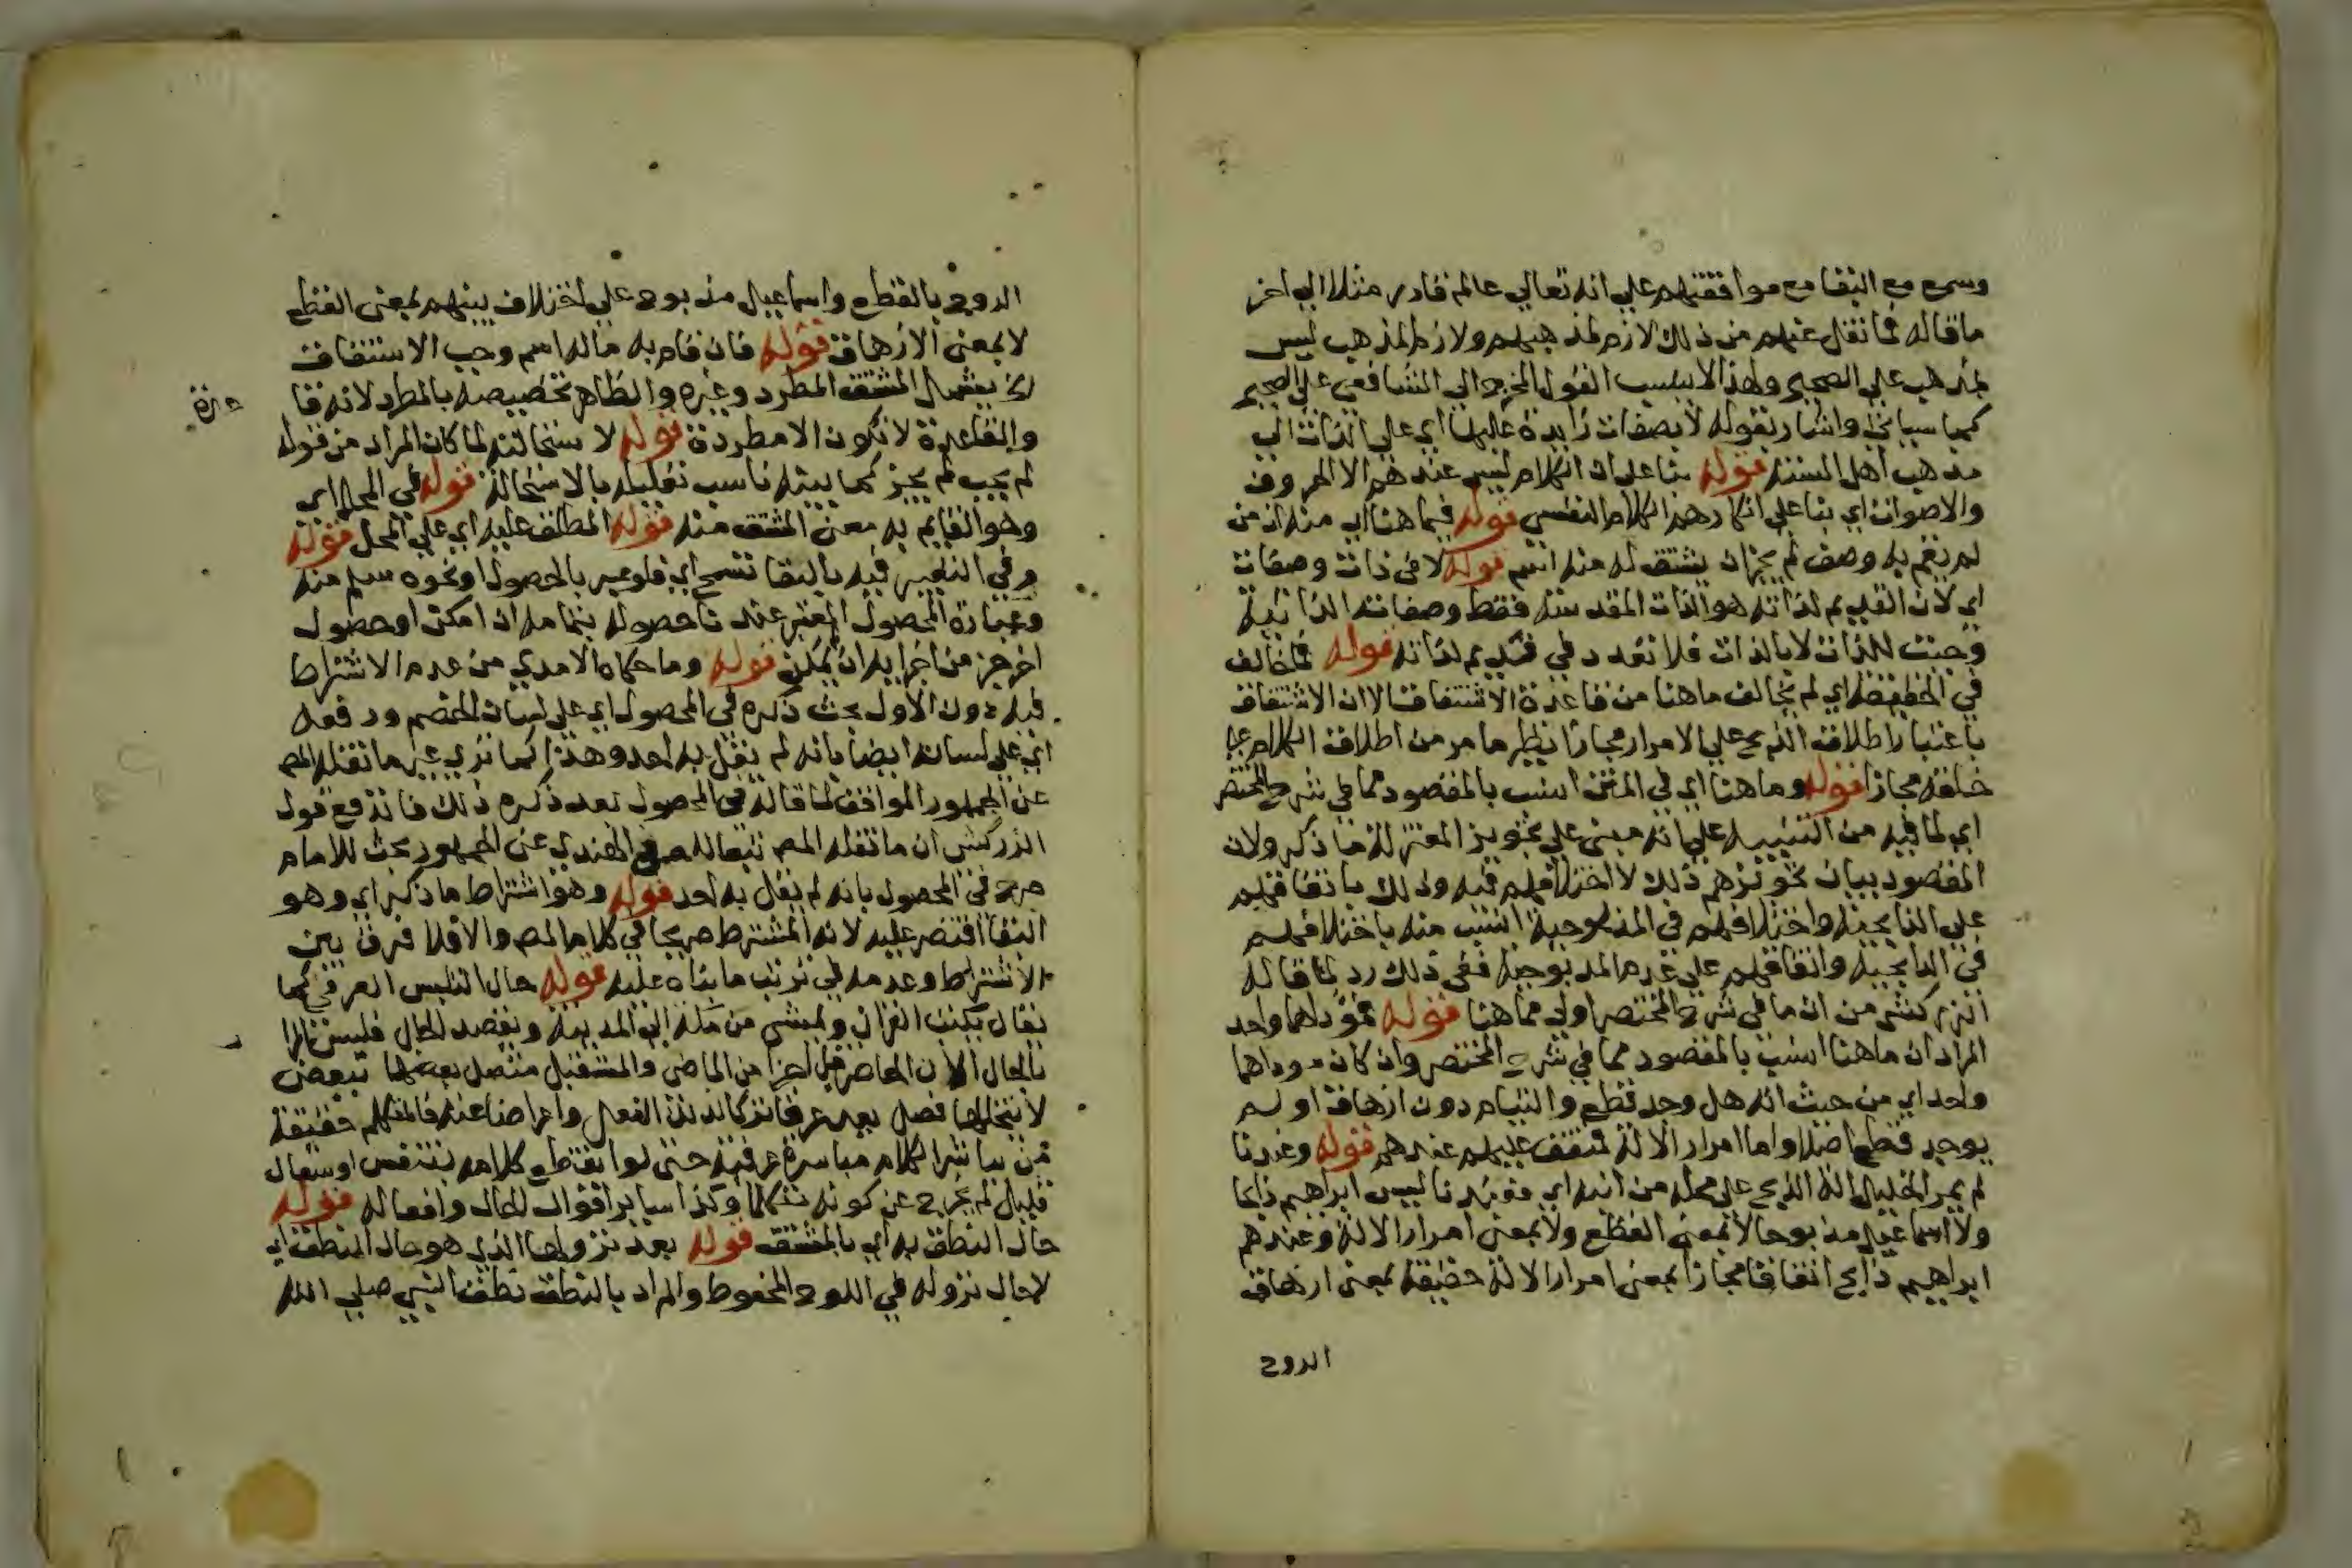 وسمع مع البقا مع موافقتهم علي انه تعالي عالم قادر مثلا الي اخر
ما قاله فما نقل عنهم من ذلك لازم لمذهبهم ولازم المذهب ليس
بمذهب علي الصحيح ولهذا لا ينسب القول المخرج الي الشافعي علي الصحيح
كما سياتي واشار بقوله لا بصفات زايدة عليها اي علي الذات الي
مذهب اهل السنة قوله بنا علي ان الكلام ليس عندهم الا الحروف
والاصوات اي بنا علي انكارهم الكلام النفسي قوله فيما هنا اي منه ان من
لم يقم به وصف لم يجز ان يشتق له منه اسم قوله لا في ذات وصفات
اي لان القديم لذاته هو الذات المقدسة فقط وصفاته الذاتية
وجبت للذات لا بالذات فلا تعدد في قديم لذاته قوله فلم يخالف
في الحقيقة اي لم يخالف ما هنا من قاعدة الاشتقاق الا ان الاشتقاق
باعتبار اطلاق الذبح علي الامرار مجازا نظير ما مر من اطلاق الكلام علي
خلقه مجازا قوله وما هنا اي في المتن انسب بالمقصود مما في شرح المختصر
اي لما فيه من التنبيه علي انه مبني علي تجويز المعتزلة ما ذكر ولان
المقصود بيان تجويزهم ذلك لا اختلافهم فيه وذلك باتفاقهم
علي الذابحية واختلافهم في المذبوحية انسب منه باختلافهم
في الذابحية واتفاقهم علي عدم المذبوحية ففي ذلك رد لما قاله
الزركشي من ان ما في شرح المختصر اولي مما هنا قوله فمؤداهما واحد
المراد ان ما هنا انسب بالمقصود مما في شرح المختصر وان كان موداهما
واحد اي من حيث انه هل وجد قطع والتيام دون ازهاق او لم
يوجد قطع اصلا واما امرار الالة فمتفق عليه عندهم قوله وعندنا
لم يمر الخليل الة الذبح علي محله من ابنه اي فعندنا ليس ابراهيم ذابحا
ولا اسماعيل مذبوحا لا بمعني القطع ولا بمعني امرار الالة وعندهم
ابراهيم ذابح اتفاقا مجازا بمعني امرار الالة حقيقة بمعني ازهاق
الروح
الروح بالقطع واسماعيل مذبوح علي اختلاف بينهم بمعني القطع
لا بمعني الازهاق قوله فان قام به ما له اسم وجب الاشتقاق
لا يشمل المشتق المطرد وغيره والظاهر تخصيصه بالمطرد لانه قا
عدة
والقاعدة لا تكون الا مطردة قوله لاستحالته لما كان المراد من قوله
لم يجب لم يجز كما بينه ناسب تعليله بالاستحالة قوله في المحل اي
وهو القايم به معني المشتق منه قوله المطلق عليه اي علي المحل قوله
وفي التعبير فيه بالبقا تسمح اي فلو عبر بالحصول او نحوه سلم منه
وعبارة المحصول المعتبر عندنا حصوله بتمامه ان امكن او حصول
اخر جز من اجزايه ان لم يمكن قوله وما حكاه الامدي من عدم الاشتراط
فيه دون الاول بحث ذكره في المحصول اي علي لسان الخصم ودفعه
اي علي لسانه ايضا بانه لم يقل به احد وهذا كما تري غير ما نقله المص
عن الجمهور الموافق لما قاله في المحصول بعد ذكره ذلك فاندفع قول
الزركشي ان ما نقله المص تبعا للصفي الهندي عن الجمهور بحث للامام
صرح في المحصول بانه لم يقل به احد قوله وهو اشتراط ما ذكر اي وهو
البقا اقتصر عليه لانه المشترط صريحا في كلام المص والا فلا فرق بين
الاشتراط وعدمه في ترتب ما بناه عليه قوله حال التلبس العرفي كما
يقال يكتب القران ويمشي من مكة الي المدينة ويقصد الحال فليس المراد
بالحال الان الحاضر بل اجزا من الماضي والمستقبل متصل بعضها ببعض
لا يتخللها فصل يعد عرفا تركا لذلك الفعل واعراضا عنه فالمتكلم حقيقة
من يباشر الكلام مباشرة عرفية حتي لو انقطع كلامه بتنفس او سعال
قليل لم يخرج عن كونه متكلما وكذا ساير اقوال الحال وافعاله قوله
حال النطق به اي بالمشتق قوله بعد نزولها الذي هو حال النطق اي
لا حال نزوله في اللوح المحفوظ والمراد بالنطق نطق النبي صلي الله